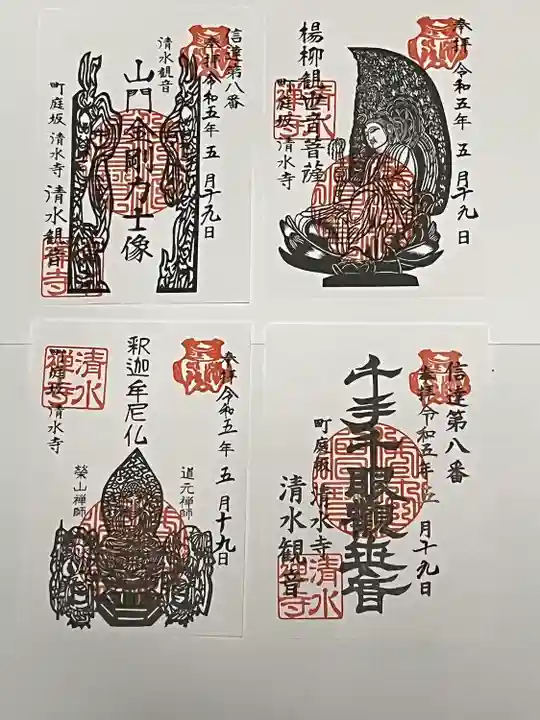 信達第八番
奉拝 令和五年 五月十九日
清水観音
山門 金剛力士像
町庭坂 清水寺
清水観音
奉拝 令和五年 五月十九日
楊柳観世音菩薩
町庭坂 清水寺
清水禅寺
奉拝 令和五年 五月十九日
釈迦牟尼仏
道元禅師
榮山禅師
町庭坂 清水寺
清水禅寺
信達第八番
奉拝 令和五年 五月十九日
千手千眼觀世音
町庭坂 清水寺
清水観音
清水禅寺